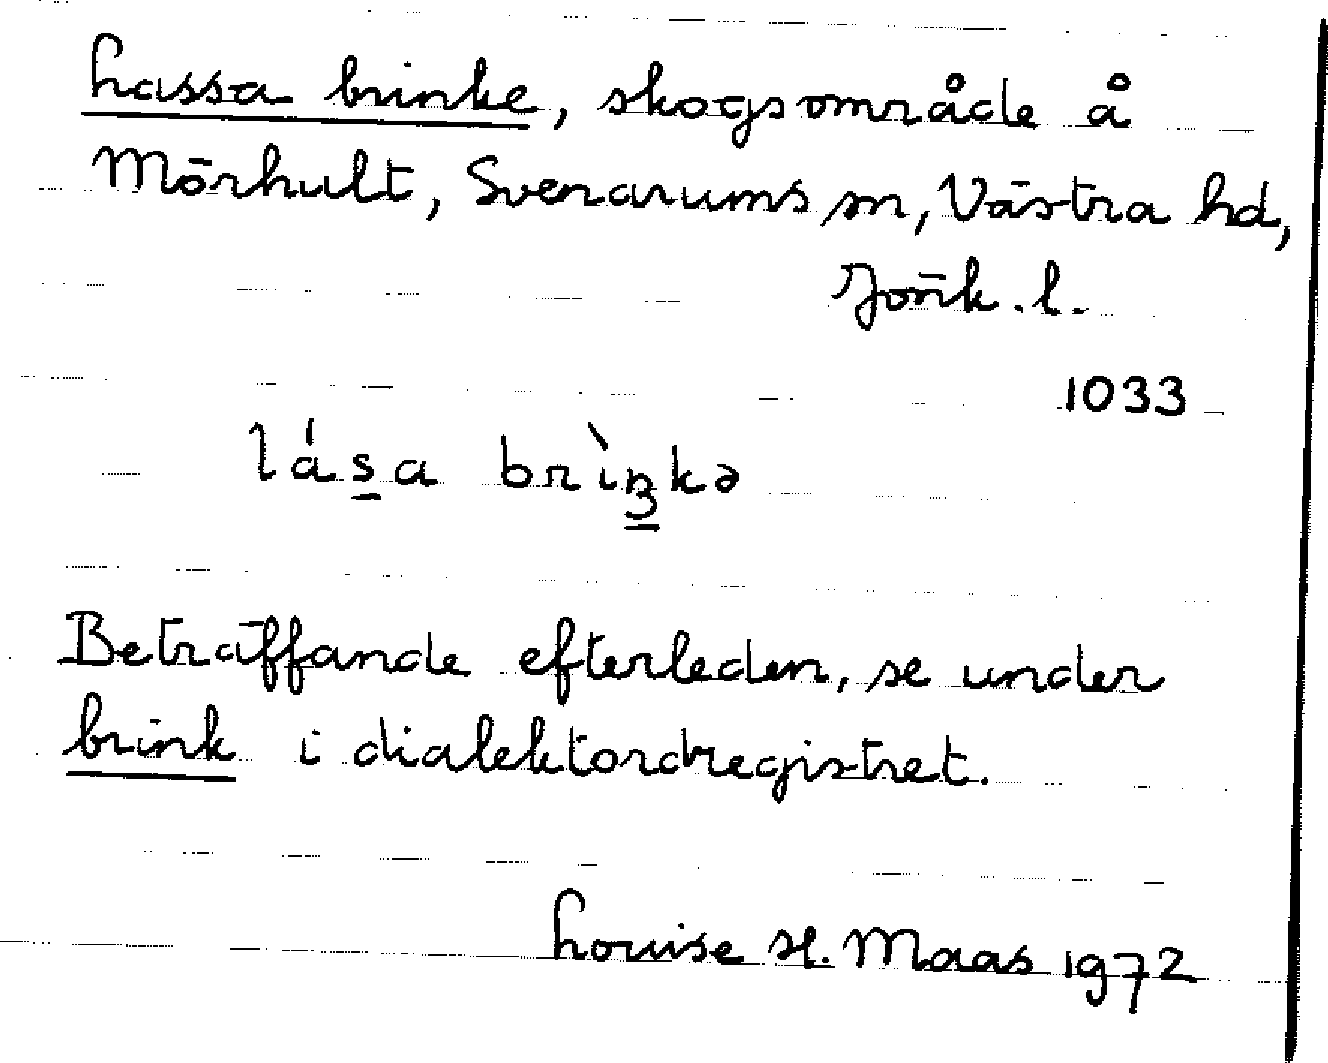 Lassa brinke, skogsområde å
Mörhult, Svenarums sn, Västra hd,
Jönk. l.
1033
lása brìŋkə
Beträffande efterleden, se under
brink i dialektordregistret.
Louise H. Maas 1972